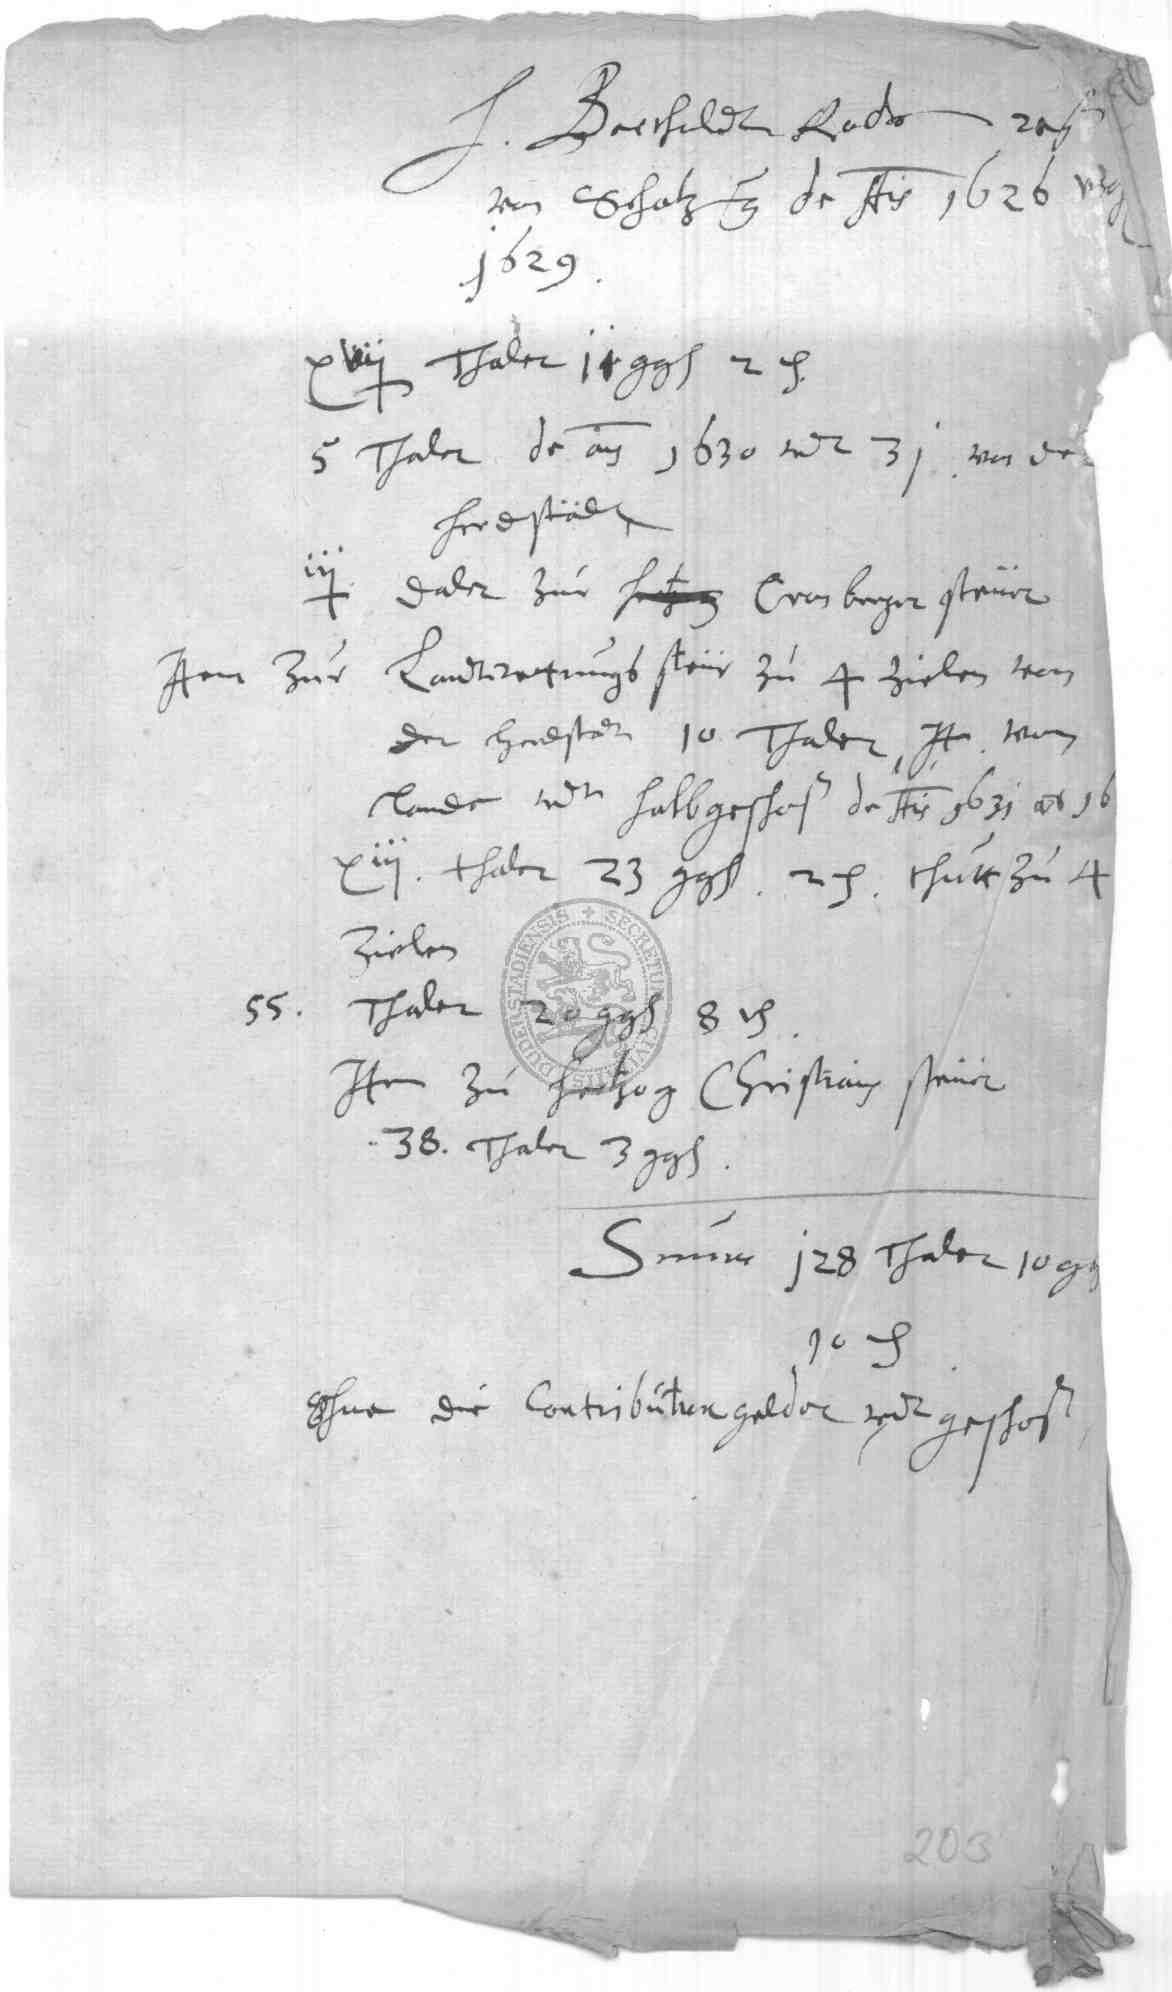 H. Berthıldt Rode rest
von Schatzg de Ais 1626
1629.
xviij Thaler 11 ggl 2 ₰.
5 Thaler de ais 1630 undt 31 von de
herdstädt
iij daler zur Cronberger steuer
Item zur Landtrettungs steur zu 4 zielen von
der herdstedt 10 Thaler, It. von
Lande undt halbgeschoß de Ais 1631 16
xiij. thaler 23 ggl. 2 ₰. thutt zu 4
Zielen
55. Thaler 20 ggl 8 ₰.
Item zu hertzog Christians steuer
38. Thaler 3 ggl.
Summa 128 Thaler 10 gg
10 ₰
Ohne die Contribution gelder undt geschoß
SECRETUM CIVITATIS DUDERSTADIENSIS
203